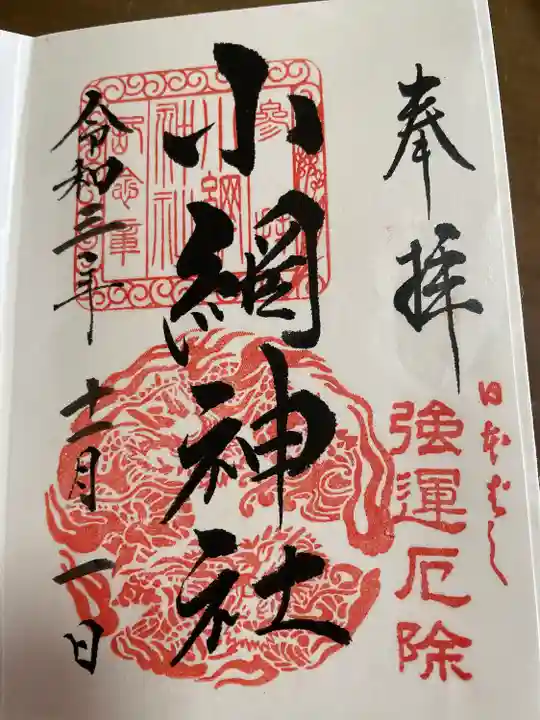 奉拝
日本ばし
強運厄除
小網神社
令和三年十一月一日